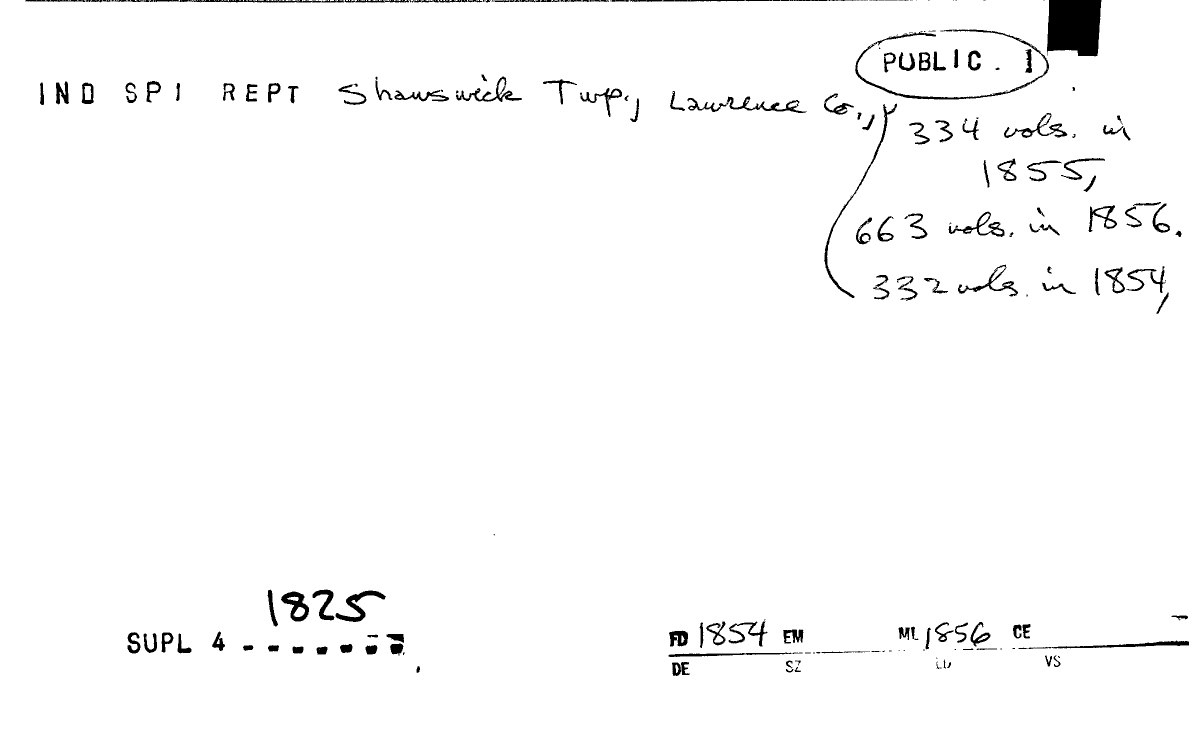 PUBLIC. 1
IND SPI REPT Shawswick Twp., Lawrence Co.,
334 vols. in
1855,
663 vols. in 1856.
332 vols. in 1854,
1825
SUPL 4 - - - - - - -
FD 1854 EM ML 1856 CE
DE SZ LD VS